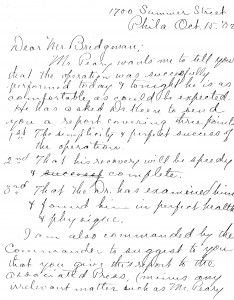 1700 Summer Street
Phila. Oct. 15. '02
Dear Mr. Bridgman;
Mr. Peary wants me to tell you
that the operation was successfully
performed today & tonight he is as
comfortable as could be expected.
He has asked Dr. Keen to send
you a report covering three points
1st The simplicity & perfect success of
the operation.
2nd That his recovery will be speedy
& complete.
3rd That the Dr. has examined him
& found him in perfect health
& physique.
I am also commanded by the
Commander to suggest to you
that you give this report to the
Associated Press, (minus any
irrelevant matter such as Mr. Peary